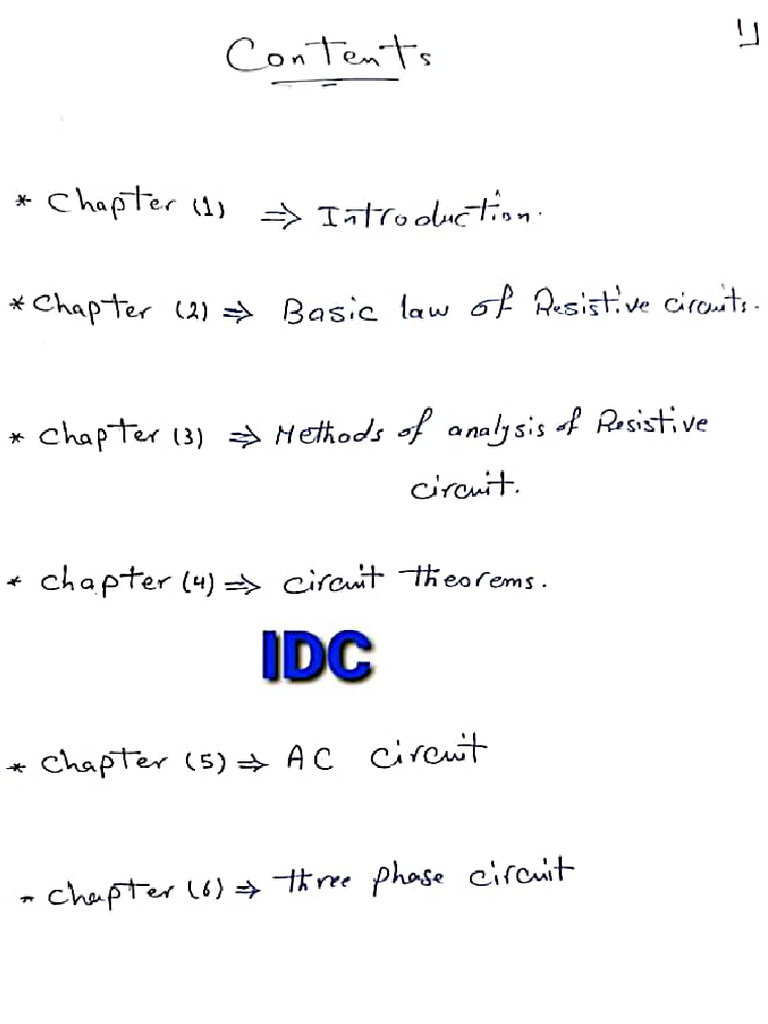 1
Contents
* Chapter (1) ⇒ Introduction.
* Chapter (2) ⇒ Basic law of Resistive circuits.
* Chapter (3) ⇒ Methods of analysis of Resistive
circuit.
* Chapter (4) ⇒ circuit theorems.
IDC
* Chapter (5) ⇒ AC circuit
- Chapter (6) ⇒ three phase circuit